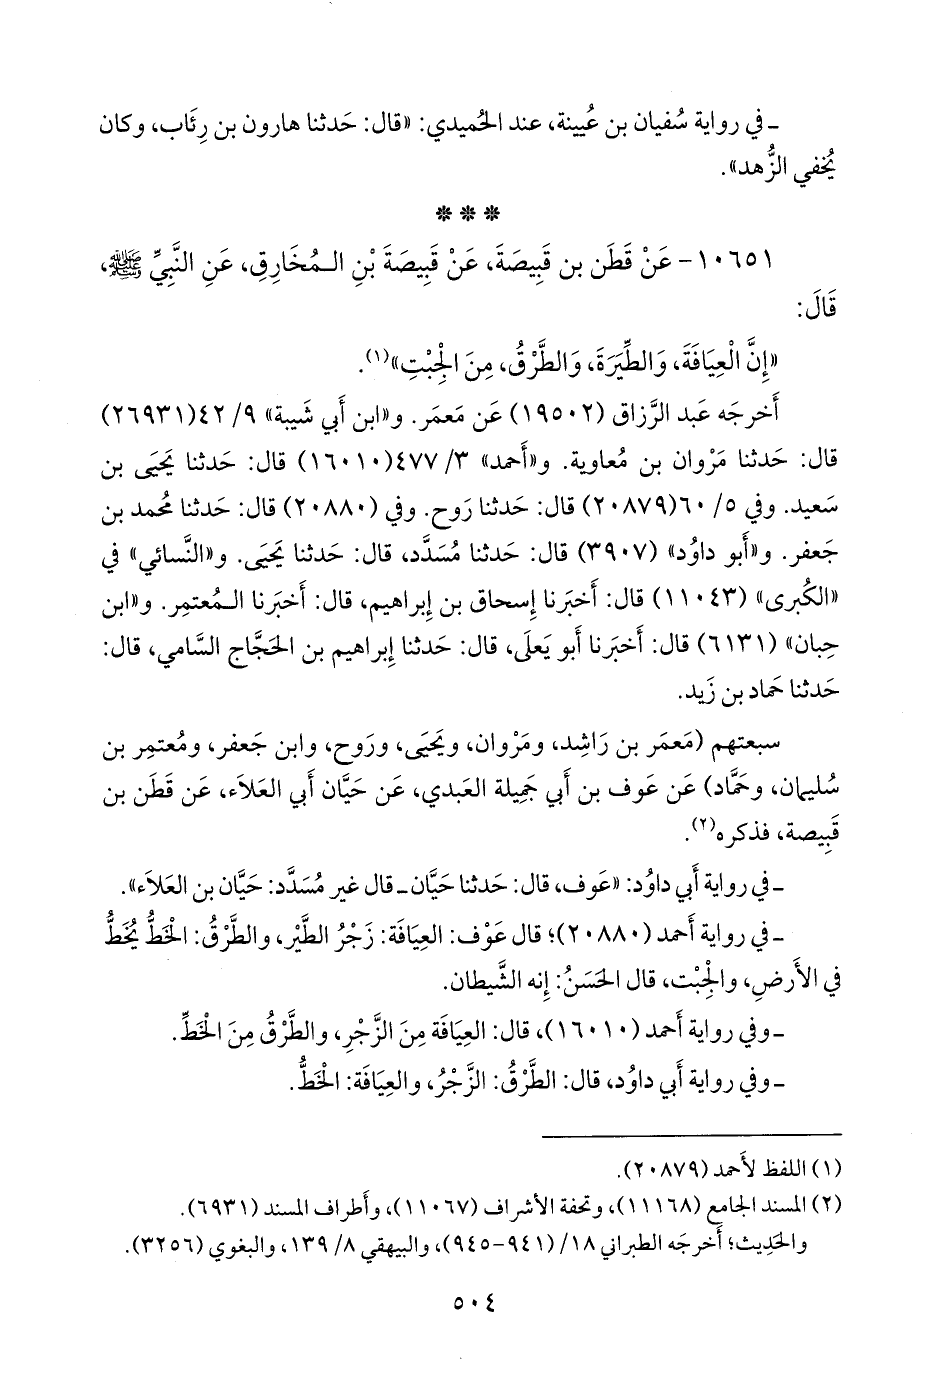 ـ في رواية سُفيان بن عُيينة، عند الحُميدي: «قال: حَدثنا هارون بن رِئَاب، وكان
يُخفي الزُّهد».
* * *
١٠٦٥١- عَنْ قَطَن بن قَبِيصَةَ، عَنْ قَبِيصَةَ بْنِ الـمُخَارِقِ، عَنِ النَّبِيِّ ﷺ،
قَالَ:
«إِنَّ الْعِيَافَةَ، وَالطِّيَرَةَ، وَالطَّرْقُ، مِنَ الْجِبْتِ»(١).
أَخرجَه عَبد الرَّزاق (١٩٥٠٢) عَن مَعمَر. و«ابن أَبي شَيبة» ٩/ ٤٢(٢٦٩٣١)
قال: حَدثنا مَرْوان بن مُعاوية. و«أَحمد» ٣/ ٤٧٧(١٦٠١٠) قال: حَدثنا يَحيَى بن
سَعيد. وفي ٥/ ٦٠(٢٠٨٧٩) قال: حَدثنا رَوح. وفي (٢٠٨٨٠) قال: حَدثنا مُحمد بن
جَعفر. و«أَبو داوُد» (٣٩٠٧) قال: حَدثنا مُسَدَّد، قال: حَدثنا يَحيَى. و«النَّسائي» في
«الكُبرى» (١١٠٤٣) قال: أَخبَرنا إِسحاق بن إِبراهيم، قال: أَخبَرنا الـمُعتمِر. و«ابن
حِبان» (٦١٣١) قال: أَخبَرنا أَبو يَعلَى، قال: حَدثنا إِبراهيم بن الحَجَّاج السَّامي، قال:
حَدثنا حَماد بن زَيد.
سبعتهم (مَعمَر بن رَاشِد، ومَرْوان، ويَحيَى، ورَوح، وابن جَعفر، ومُعتمِر بن
سُليمان، وحَمَّاد) عَن عَوف بن أَبي جَميلة العَبدي، عَن حَيَّان أَبي العَلاَء، عَن قَطَن بن
قَبِيصة، فذكره(٢).
ـ في رواية أَبي داوُد: «عَوف، قال: حَدثنا حَيَّان ـ قال غير مُسَدَّد: حَيَّان بن العَلاَء».
ـ في رواية أَحمد (٢٠٨٨٠)؛ قال عَوْف: العِيَافَة: زَجْرُ الطَّيْر، والطَّرْقُ: الخَطُّ يُخَطُّ
في الأَرضِ، والجِبْت، قال الحَسَنُ: إِنه الشَّيطان.
ـ وفي رواية أَحمد (١٦٠١٠)، قال: العِيَافَة مِنَ الزَّجْرِ، والطَّرْقُ مِنَ الخَطِّ.
ـ وفي رواية أَبي داوُد، قال: الطَّرْقُ: الزَّجْرُ، والعِيَافَة: الخَطُّ.
(١) اللفظ لأَحمد (٢٠٨٧٩).
(٢) المسند الجامع (١١١٦٨)، وتحفة الأشراف (١١٠٦٧)، وأَطراف المسند (٦٩٣١).
والحَدِيث؛ أَخرجَه الطبراني ١٨/ (٩٤١-٩٤٥)، والبيهقي ٨/ ١٣٩، والبغوي (٣٢٥٦).
٥٠٤